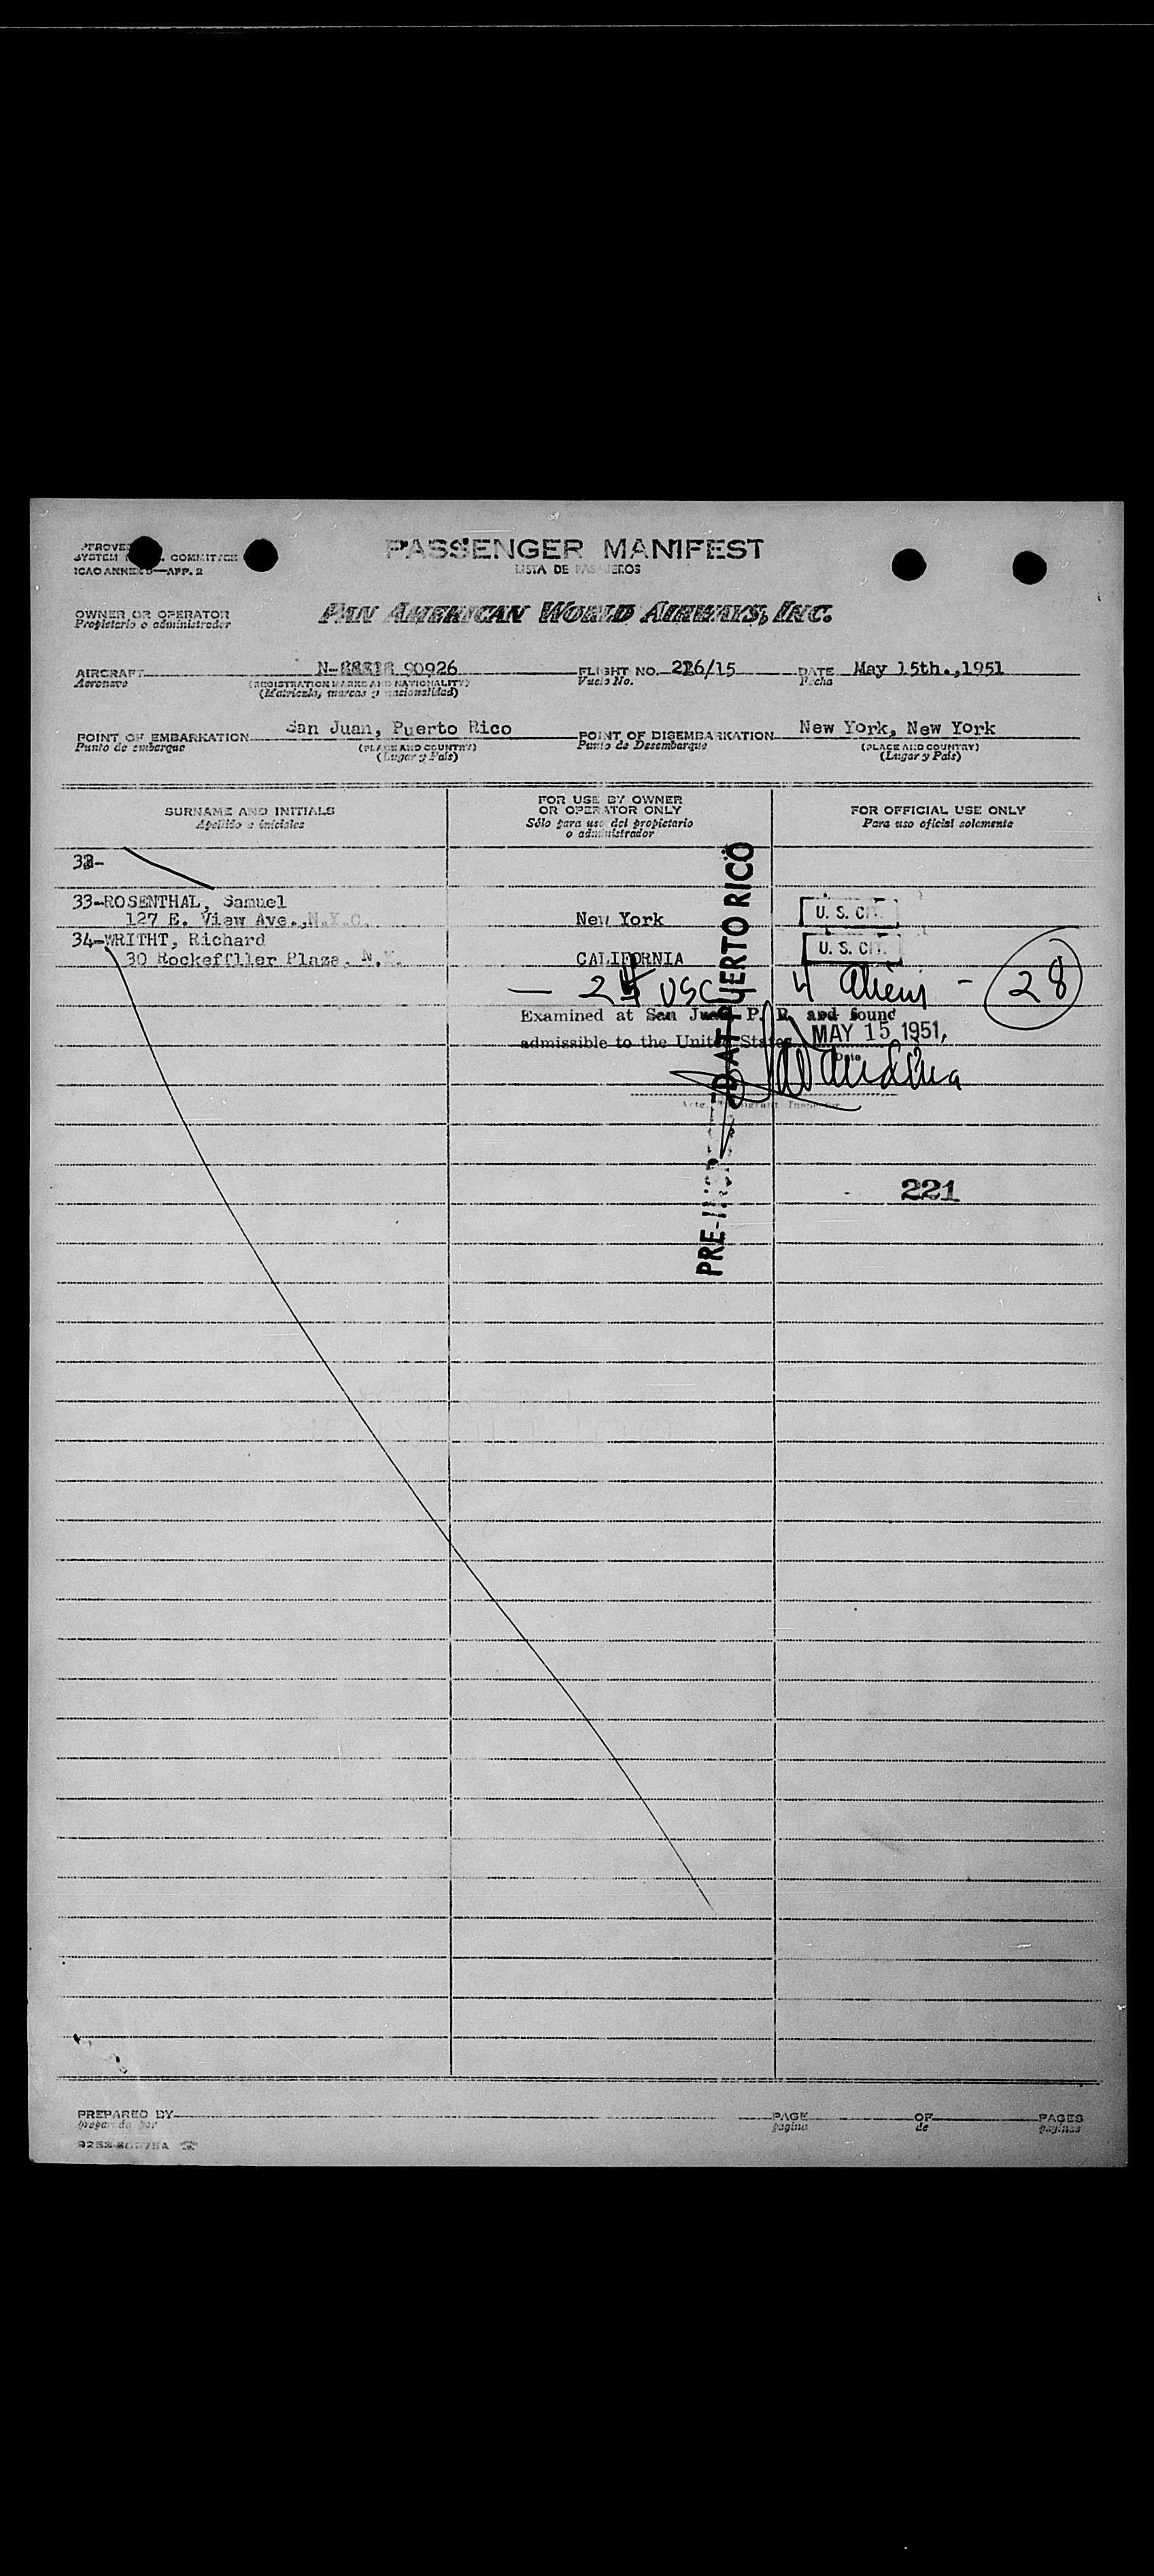 PASSENGER MANIFEST
LISTA DE PASAJEROS
COMMITTEE
ICAO ANNEX 9—APP. 2
OWNER OR OPERATOR
Propietario o administrador
PAN AMERICAN WORLD AIRWAYS, INC.
AIRCRAFT N- 90926 FLIGHT NO. 216/15 DATE May 15th.,1951
Aeronave (REGISTRATION MARKS AND NATIONALITY) Vuelo No. Fecha
(Matricula, marcas y nacionalidad)
POINT OF EMBARKATION San Juan, Puerto Rico POINT OF DISEMBARKATION New York, New York
Punto de embarque (PLACE AND COUNTRY) Punto de Desembarque (PLACE AND COUNTRY)
(Lugar y Pais) (Lugar y Pais)
SURNAME AND INITIALS FOR USE BY OWNER OR OPERATOR ONLY FOR OFFICIAL USE ONLY
Apellido e iniciales Sólo para uso del propietario o administrador Para uso oficial solemente
32-
33-ROSENTHAL, Samuel
127 E. View Ave.,N.Y.C. New York U. S. CIT.
34-WRITHT, Richard U. S. CIT.
30 Rockeffller Plaza, N.Y. CALIFORNIA
— 24 USC 4 aliens - 28
Examined at San Juan, P. R. and found
admissible to the United States MAY 15 1951,
Date
Immigrant Inspector
PRE-INSPECTED AT PUERTO RICO
221
PREPARED BY PAGE OF PAGES
preparado por pagina de paginas